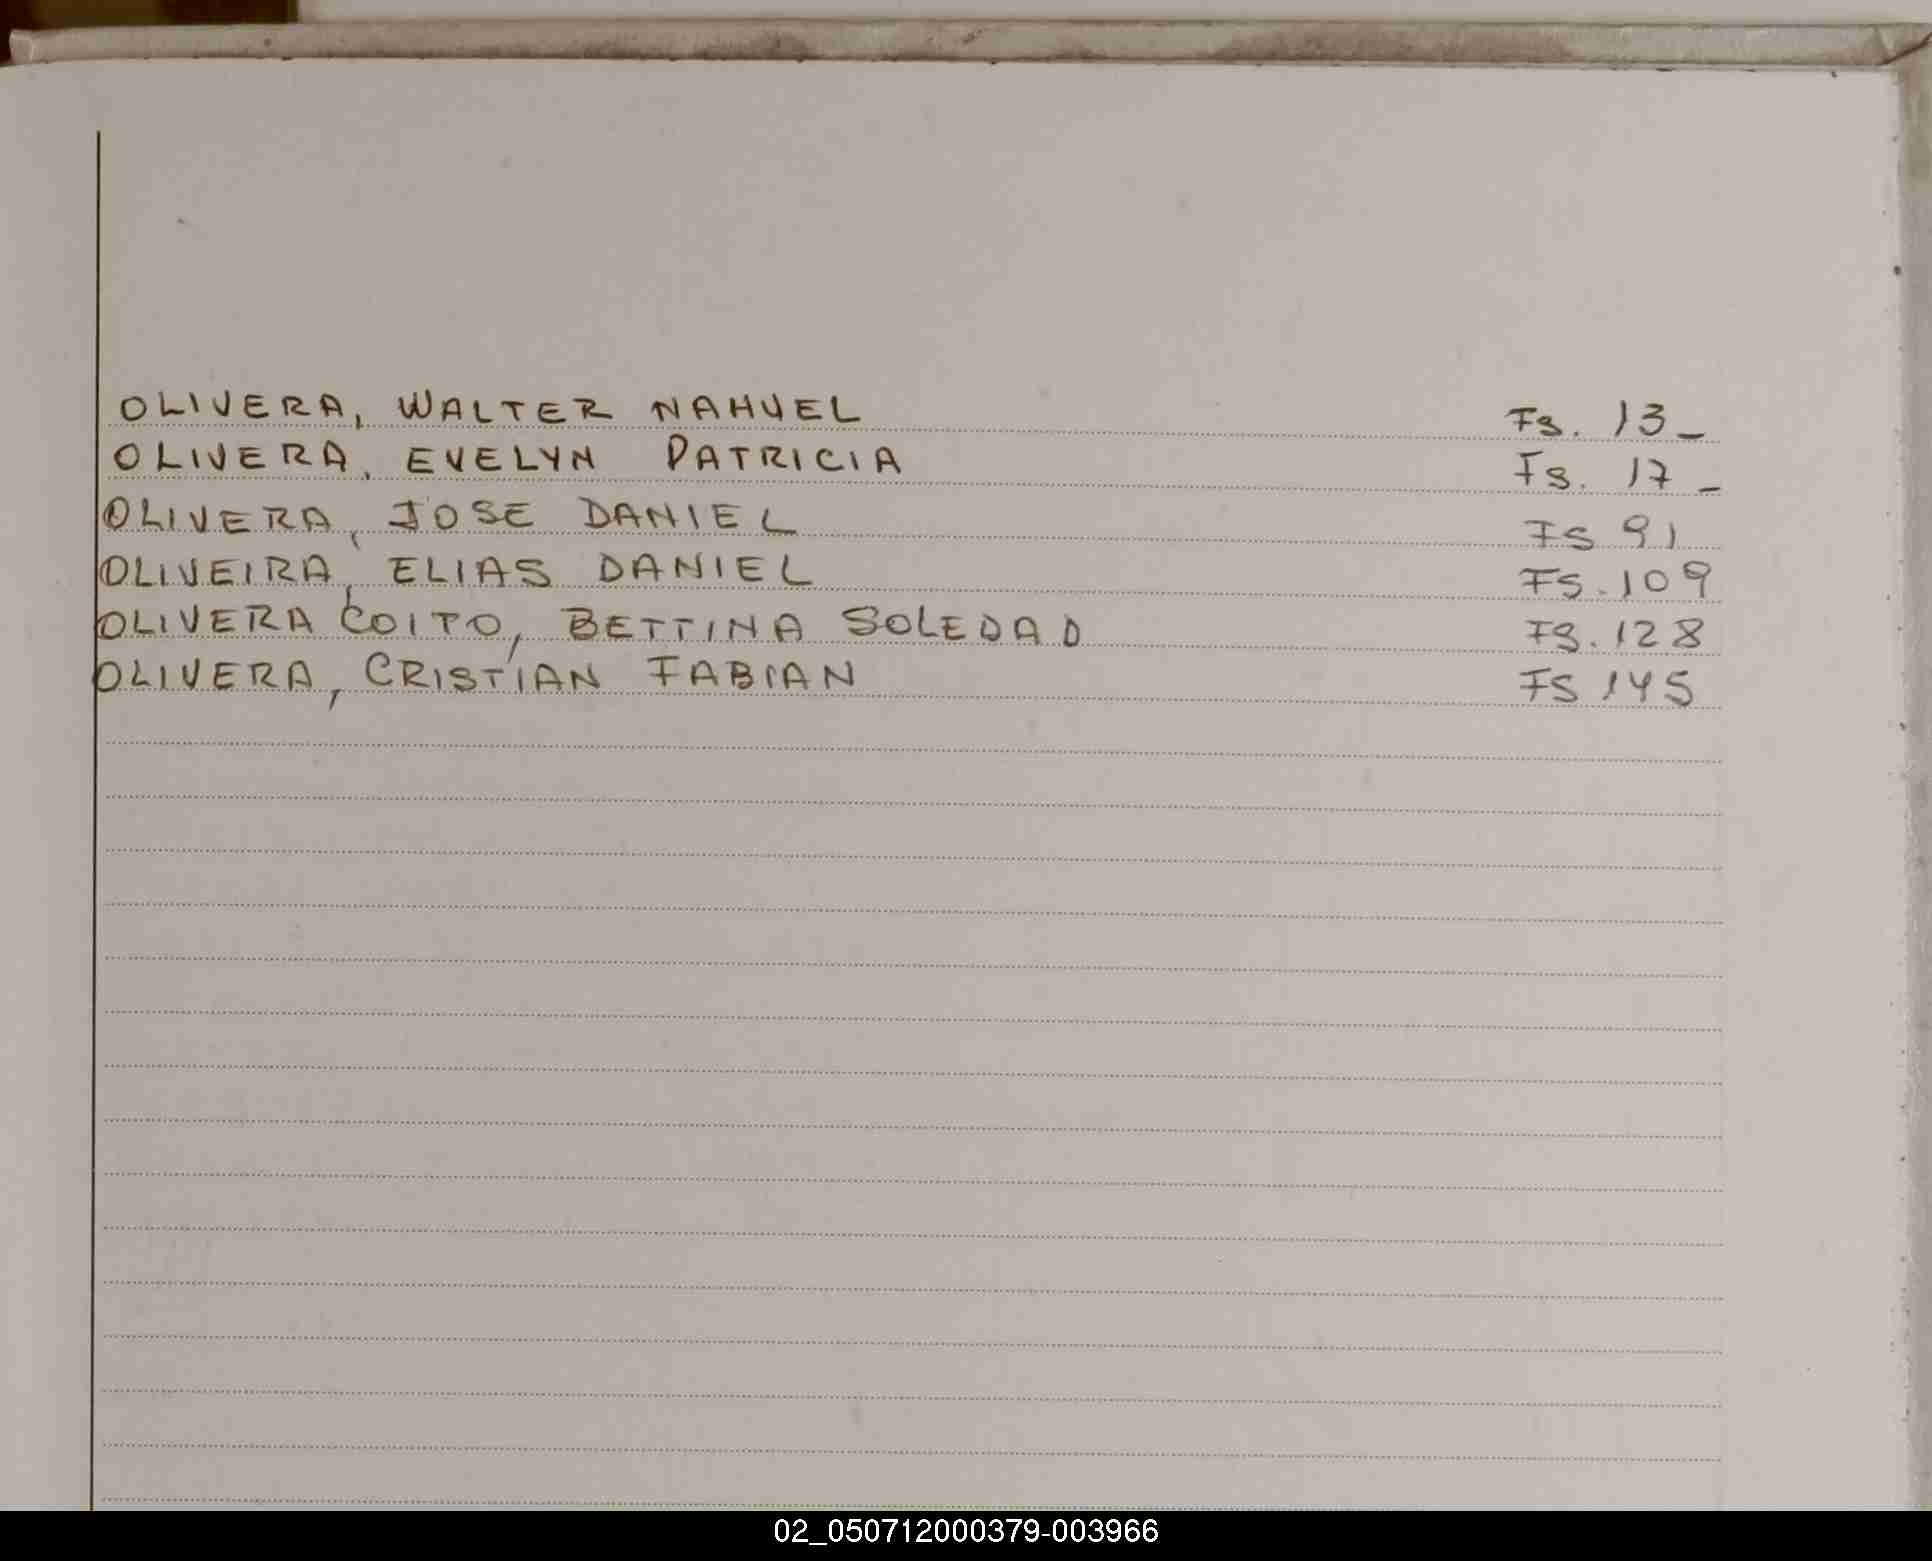 OLIVERA, WALTER NAHUEL Fs. 13_
OLIVERA, EVELYN PATRICIA Fs. 17_
OLIVERA, JOSE DANIEL Fs 91
OLIVEIRA, ELIAS DANIEL Fs. 109
OLIVERA COITO, BETTINA SOLEDAD Fs. 128
OLIVERA, CRISTIAN FABIAN Fs 145
02_050712000379-003966